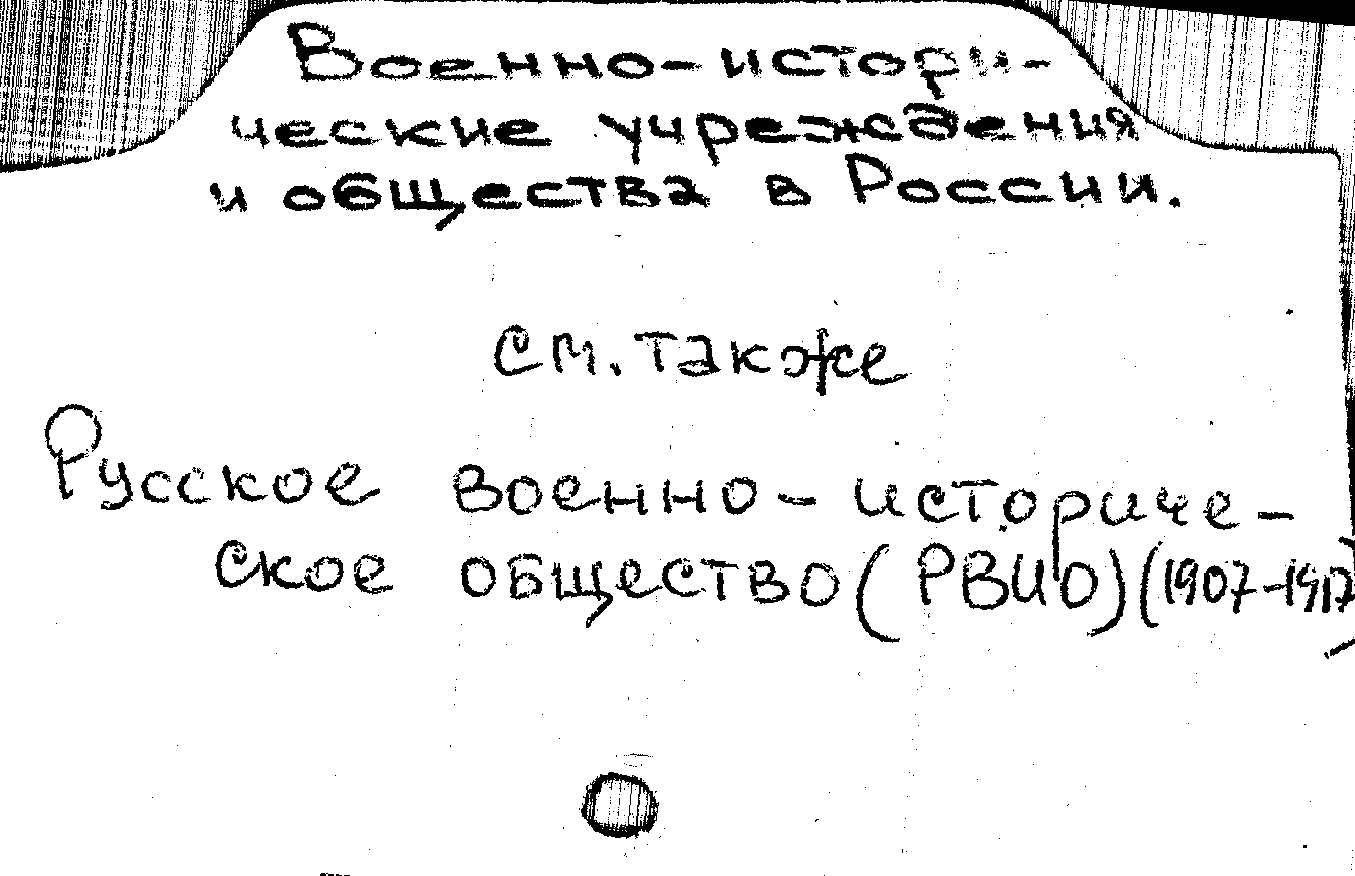 Военно-истори-
ческие учреждения
и общества в России.
см. также
Русское военно-историче-
ское общество (РВИО) (1907-1917)